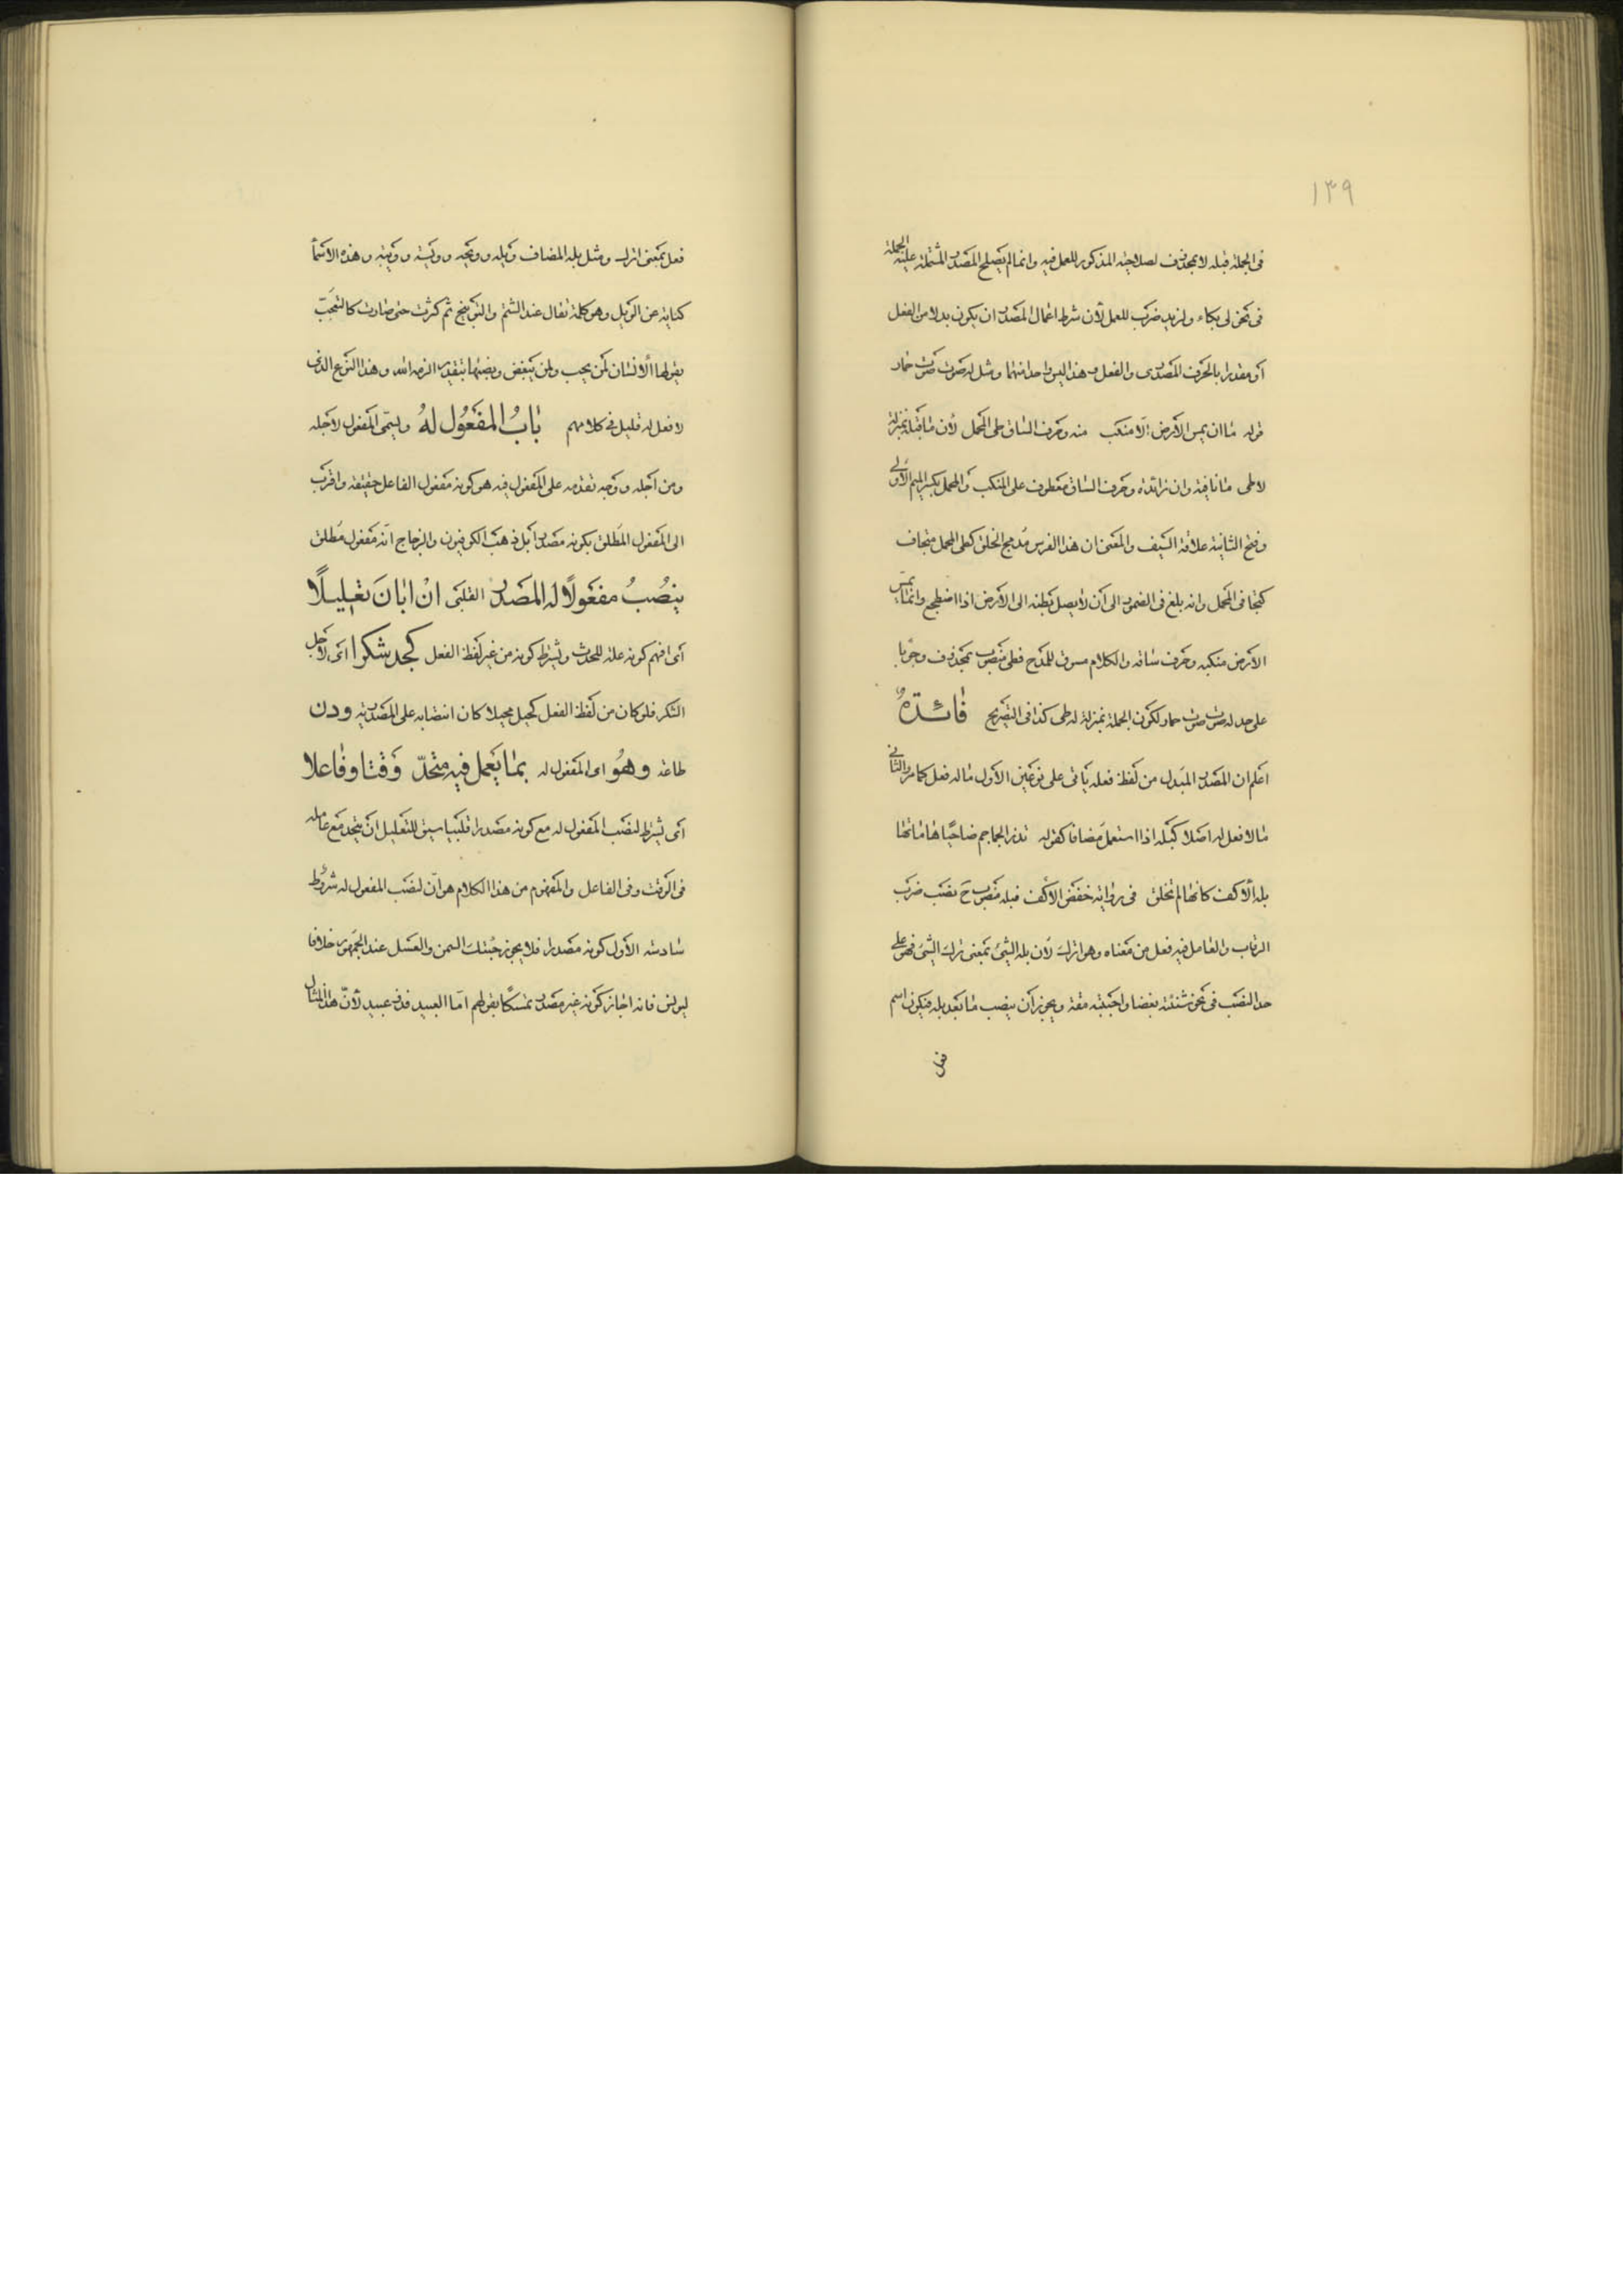 ١٣٩
فى الجملة قبله لا بمحذوف لصلاحية المذكور للعمل فيه وانما لم يصلح المصدر المشتملة عليه الجملة
فى نحو لى بكاء ولزيد ضرب للعمل لأن شرط اعمال المصدر ان يكون بدلا من الفعل
أو مقدرا بالحرف المصدرى والفعل وهذا ليس واحدا منهما ومثل له صوت صوت حمار
قوله ما ان يمس الارض إلا منكب منه وحرف الساق طى المحمل لأن ما قبله بمنزلة
له طى ما نافية وان زائدة وحرف الساق معطوف على المنكب والمحمل بكسر الميم الأولى
وفتح الثانية علاقة السيف والمعنى ان هذا الفرس مدمج الخلق كطى المحمل متجاف
كتجافى المحمل وانه بلغ فى الضمور الى أن لا يصل بطنه الى الأرض اذا اضطجع وانما يمس
الأرض منكبه وحرف ساقه والكلام مسوق للمدح فطى منصوب بمحذوف وجوبا
على حد له صوت صوت حمار لكون الجملة بمنزلة له طى كذا فى التصريح فائدة
اعلم ان المصدر المبدل من لفظ فعله يأتى على نوعين الأول ما له فعل كما مر والثانى
ما لا فعل له اصلا كبله اذا استعمل مضافا كقوله تذر الجماجم ضاحيا هاماتها
بله الأكف كانها لم تخلق فى رواية خفض الأكف فبله منصوب ح نصب ضرب
الرقاب والعامل فيه فعل من معناه وهو اترك لأن بله الشئ بمعنى ترك الشئ فهو على
حد النصب فى نحو شنئته بغضا واحببته مقة ويجوز أن ينصب ما بعد بله فيكون اسم
فعل
فعل بمعنى اترك ومثل بله المضاف ويله وويحه وويسه وويبه وهذه الأسما
كناية عن الويل وهو كلمة تقال عند الشتم والتوبيخ ثم كثرت حتى صارت كالتعجب
يقولها الانسان لمن يحب ولمن يبغض ونصبها بتقدير الزمه الله وهذا النوع الذى
لا فعل له قليل فى كلامهم باب المفعول له ويسمى المفعول لأجله
ومن أجله ووجه تقدمه على المفعول فيه هو كونه مفعول الفاعل حقيقة واقرب
الى المفعول المطلق بكونه مصدرا بل ذهب الكوفيون والزجاج انه مفعول مطلق
ينصب مفعولا له المصدر القلبى ان ابان تعليلا
أى افهم كونه علة للحدث ويشترط كونه من غير لفظ الفعل كجد شكرا اى لاجل
الشكر فلو كان من لفظ الفعل كحيل محيلا كان انتصابه على المصدرية ودن
طاعة وهو اى المفعول له بما يعمل فيه متحد وقتا وفاعلا
أى يشترط لنصب المفعول له مع كونه مصدرا قلبيا سيق للتعليل ان يتحد مع عامله
فى الوقت وفى الفاعل والمفهوم من هذا الكلام هو ان لنصب المفعول له شروط
سادسه الأول كونه مصدرا فلا يجوز جئتك السمن والعسل عند الجمهور خلافا
ليونس فانه اجاز كونه غير مصدر تمسكا بقولهم اما العبيد فذو عبيد لأن هذا المثال